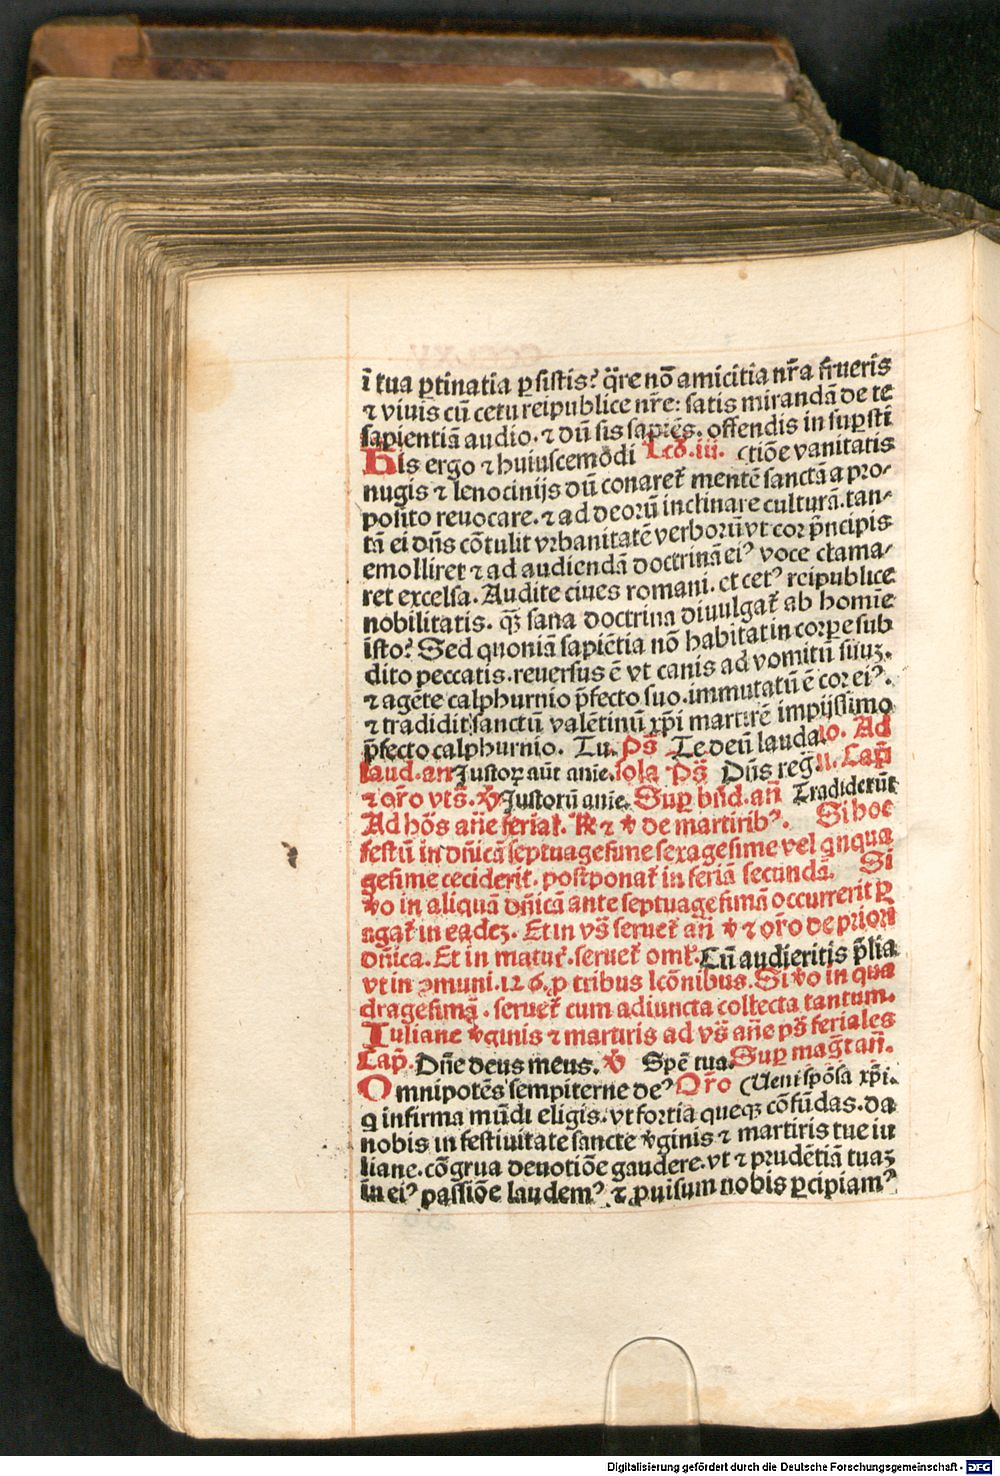 ī tua ꝑtinatia ꝑsistis? q̄re nō amicitia nr̄a frueris
⁊ viuis cū cetu reipublice nr̄e: satis mirandā de te
sapientiā audio. ⁊ dū sis sapiēs. offendis in suꝑsti
His ergo ⁊ huiuscemōdi Lcō. iii. (tiōe vanitatis
nugis ⁊ lenocinijs dū conaret᷑ mentē sanctā a pro-
posito reuocare. ⁊ ad deorū inclinare culturā. tan-
tā ei dn̄s cōtulit vrbanitatē verborū vt cor p̄ncipis
emolliret ⁊ ad audiendā doctrinā ei⁹ voce clama-
ret excelsa. Audite ciues romani. et cet⁹ reipublice
nobilitatis. qꝫ sana doctrina diuulgat᷑ ab homīe
īsto? Sed quoniā sapiētia nō habitat in corꝑe sub
dito peccatis. reuersus ē vt canis ad vomitū suuꝫ.
⁊ agēte calphurnio p̄fecto suo. immutatū ē cor ei⁹.
⁊ tradidit sanctū valētinū xp̄i martirē impijssimo
p̄fecto calphurnio. Tu. Ps̄ Te deū lauda. io. Ad
laud. an̄ Justoꝝ aūt anie. sola Ps̄ Dn̄s reg̈. ii. Cap̄
⁊ or̄o vts̄. ℣ Justorū anie. Suꝑ bn̄d. an̄ Tradiderūt
Ad hōs an̄e ferial᷑. ℟ ⁊ ℣ de martirib⁹. Si hoc
festū in dn̄icā septuagesime sexagesime vel qnqua
gesime ceciderit. postponat᷑ in feriā secundā. Si
℣o in aliquā dn̄icā ante septuagesimā occurrerit ꝑ
agat᷑ in eadeꝫ. Et in vs̄ seruet᷑ an̄ ℣ ⁊ or̄o de priori
dn̄ica. Et in matut᷑. seruet᷑ om̄. Cū audieritis p̄lia
vt in ꝯmuni. 126. ꝓ tribus lcōnibus. Si ℣o in qua
dragesimā. seruet᷑ cum adiuncta collecta tantum.
Iuliane ℣ginis ⁊ martiris ad vs̄ an̄e ps̄ feriales
Cap̄. Dn̄e deus meus. ℣ Spē tua. Suꝑ maḡt an̄.
Omnipotēs sempiterne de⁹ Or̄o (Ueni spōsa xp̄i.
q infirma mūdi eligis. vt fortia queqꝫ cōfūdas. da
nobis in festiuitate sancte ℣ginis ⁊ martiris tue iu
liane. cōgrua deuotiōe gaudere. vt ⁊ prudētiā tuaꝫ
in ei⁹ passiōe laudem⁹ ⁊ ꝓuisum nobis ꝑcipiam⁹
Digitalisierung gefördert durch die Deutsche Forschungsgemeinschaft - DFG